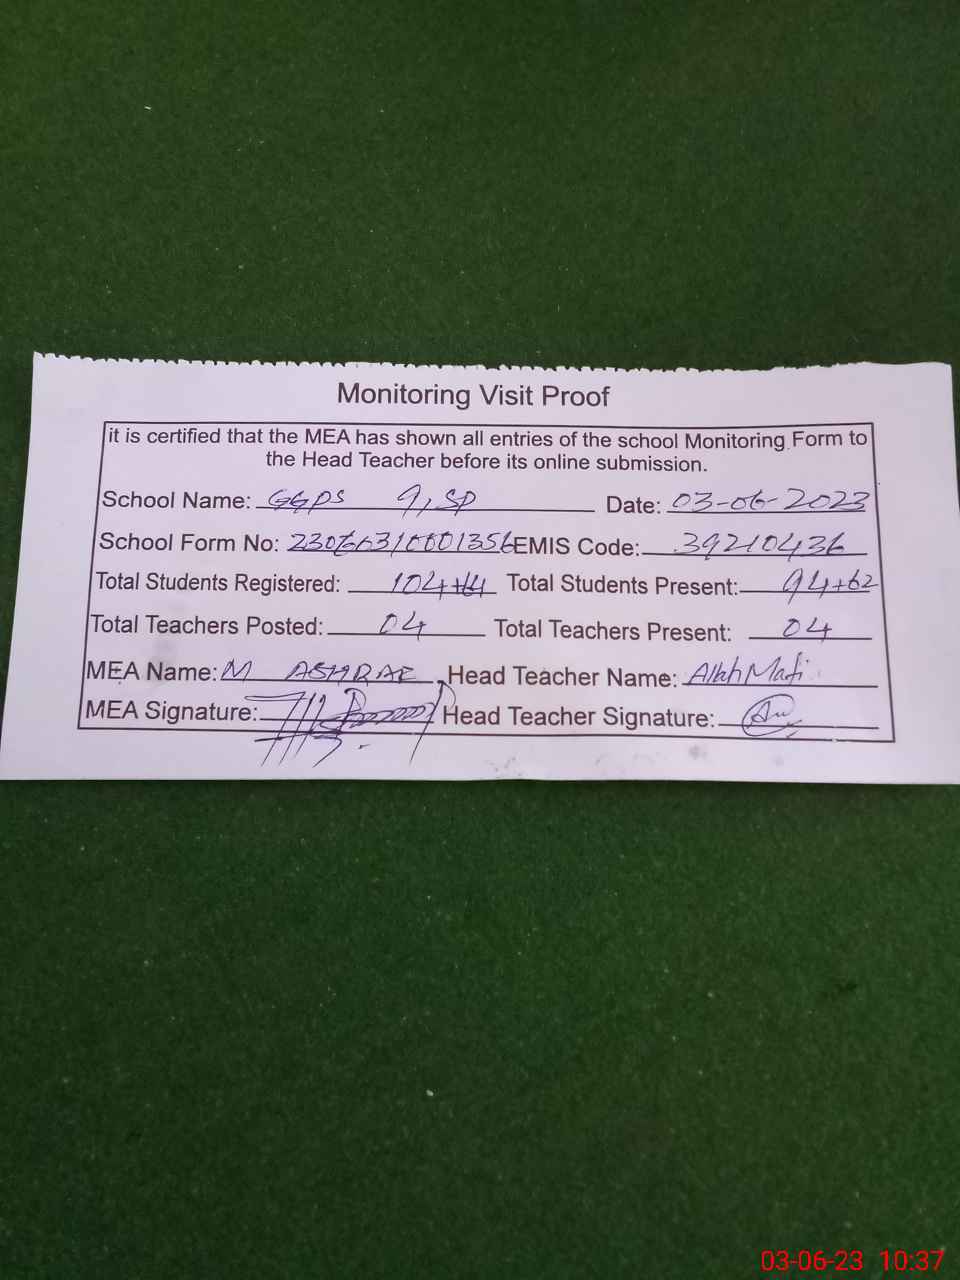 Monitoring Visit Proof
it is certified that the MEA has shown all entries of the school Monitoring Form to
the Head Teacher before its online submission.
School Name: GGPS 9,SP Date: 03-06-2023
School Form No: EMIS Code: 39210436
Total Students Registered: 104+ Total Students Present: 94+62
Total Teachers Posted: 04 Total Teachers Present: 04
MEA Name: M ASHRAF Head Teacher Name: Allah
MEA Signature: Head Teacher Signature:
03-06-23 10:37